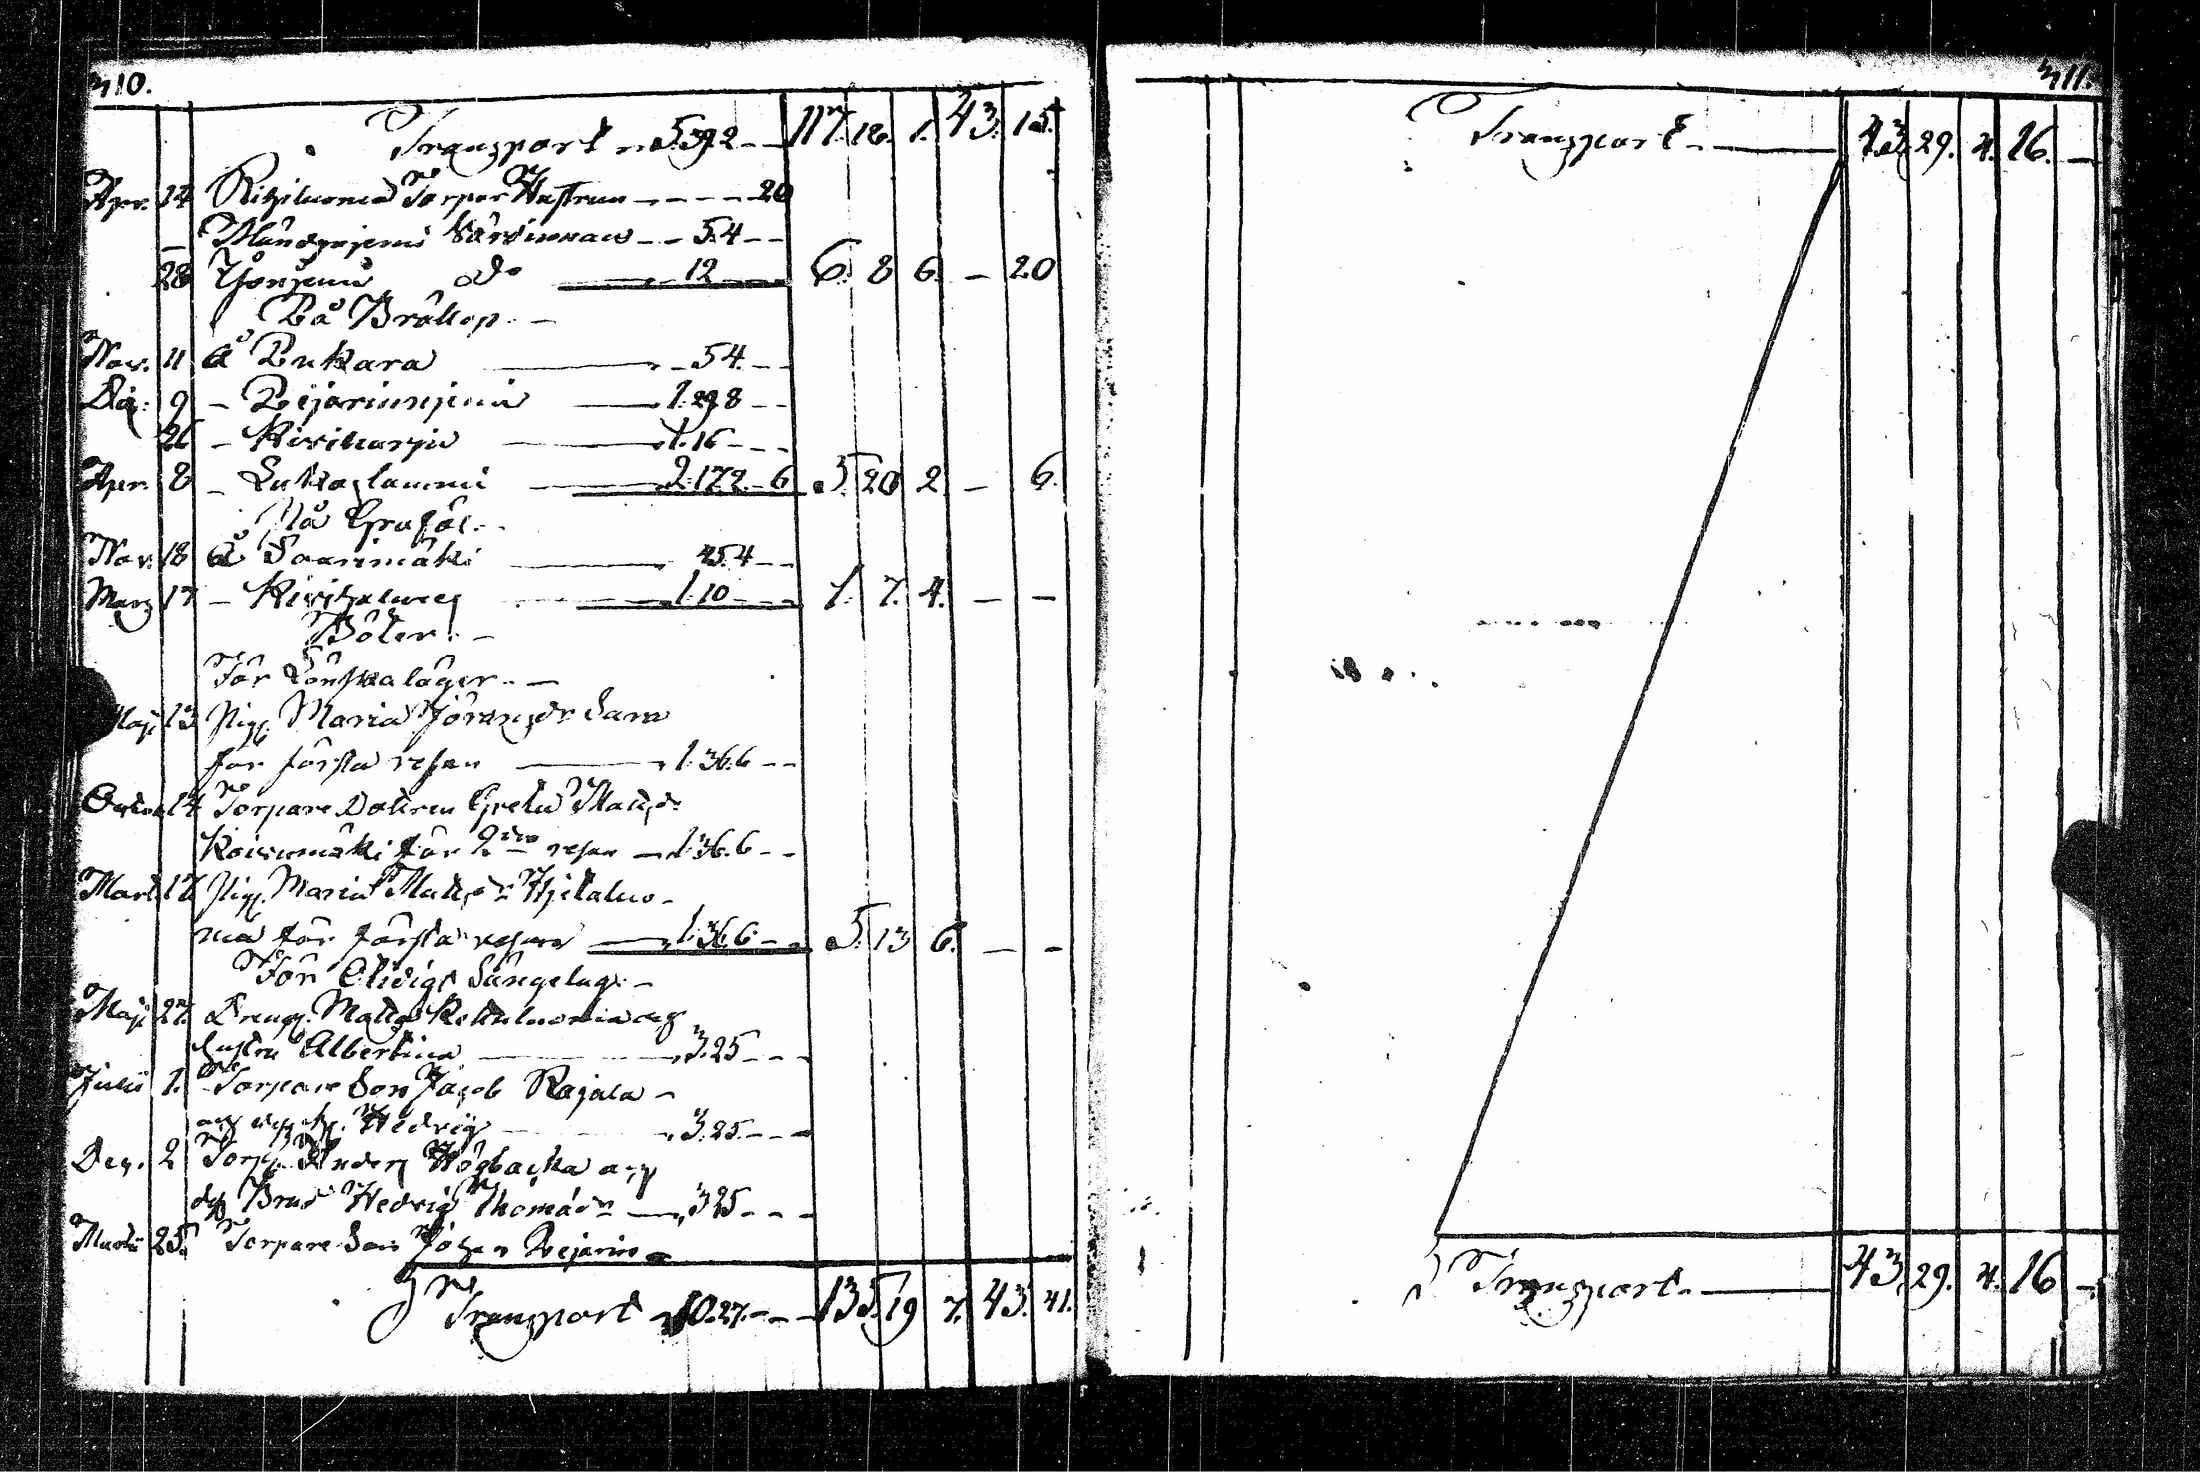 310.
Transport 5.39.2 — 117. 18. 1. 43. 15.
Apr. 14 Torpar Hustrun — 20
— — 5.4 —
28 do — 12 — 6. 8 6. — 20
På Bröllop. —
Nov. 11 å Pukara — 54. —
9 — Pejarinnjemi — 1.29.8 —
26 — Kiviharju — 1.16 —
Apr. 8 — — 2.17.2. 6 3. 20 2. — 6.
På Graföl. —
Nov. 18 å Saarimäki — 45.4 —
Mars 17 — — 1.10 — 1. 7. 4. — —
Böter. —
För Lönskaläger. —
Maji 13 Pig. Maria Göransdr Sam
för första resan — 1.36.6 —
14 Torpare Dottren Greta Mattsdr
Koivumäki för 2dra resan — 1.36.6 —
Mart. 17 Pig. Maria Mattsdr Hjitaluo-
ma för första resan — 1.36.6 — 5. 13 6. — —
För Otidigt Sängelag. —
Maji 27. Dreng. Matts Kettuluoma och
hustru Albertina — 3.25 —
Julii 1. Torpare Son Jacob Rajala —
och Hedvig — 3.25 —
Dec. 2 Torp. Anders Högbacka och
dess Brud Hedvig Thomædr — 3.25 —
Martii 25. Torpare Son Johan Pejarin
Transport 10.27. — 135. 19 7. 43. 41.
311.
Transport. — 43. 29. 4. 16. —
Transport. — 43. 29. 4. 16 —